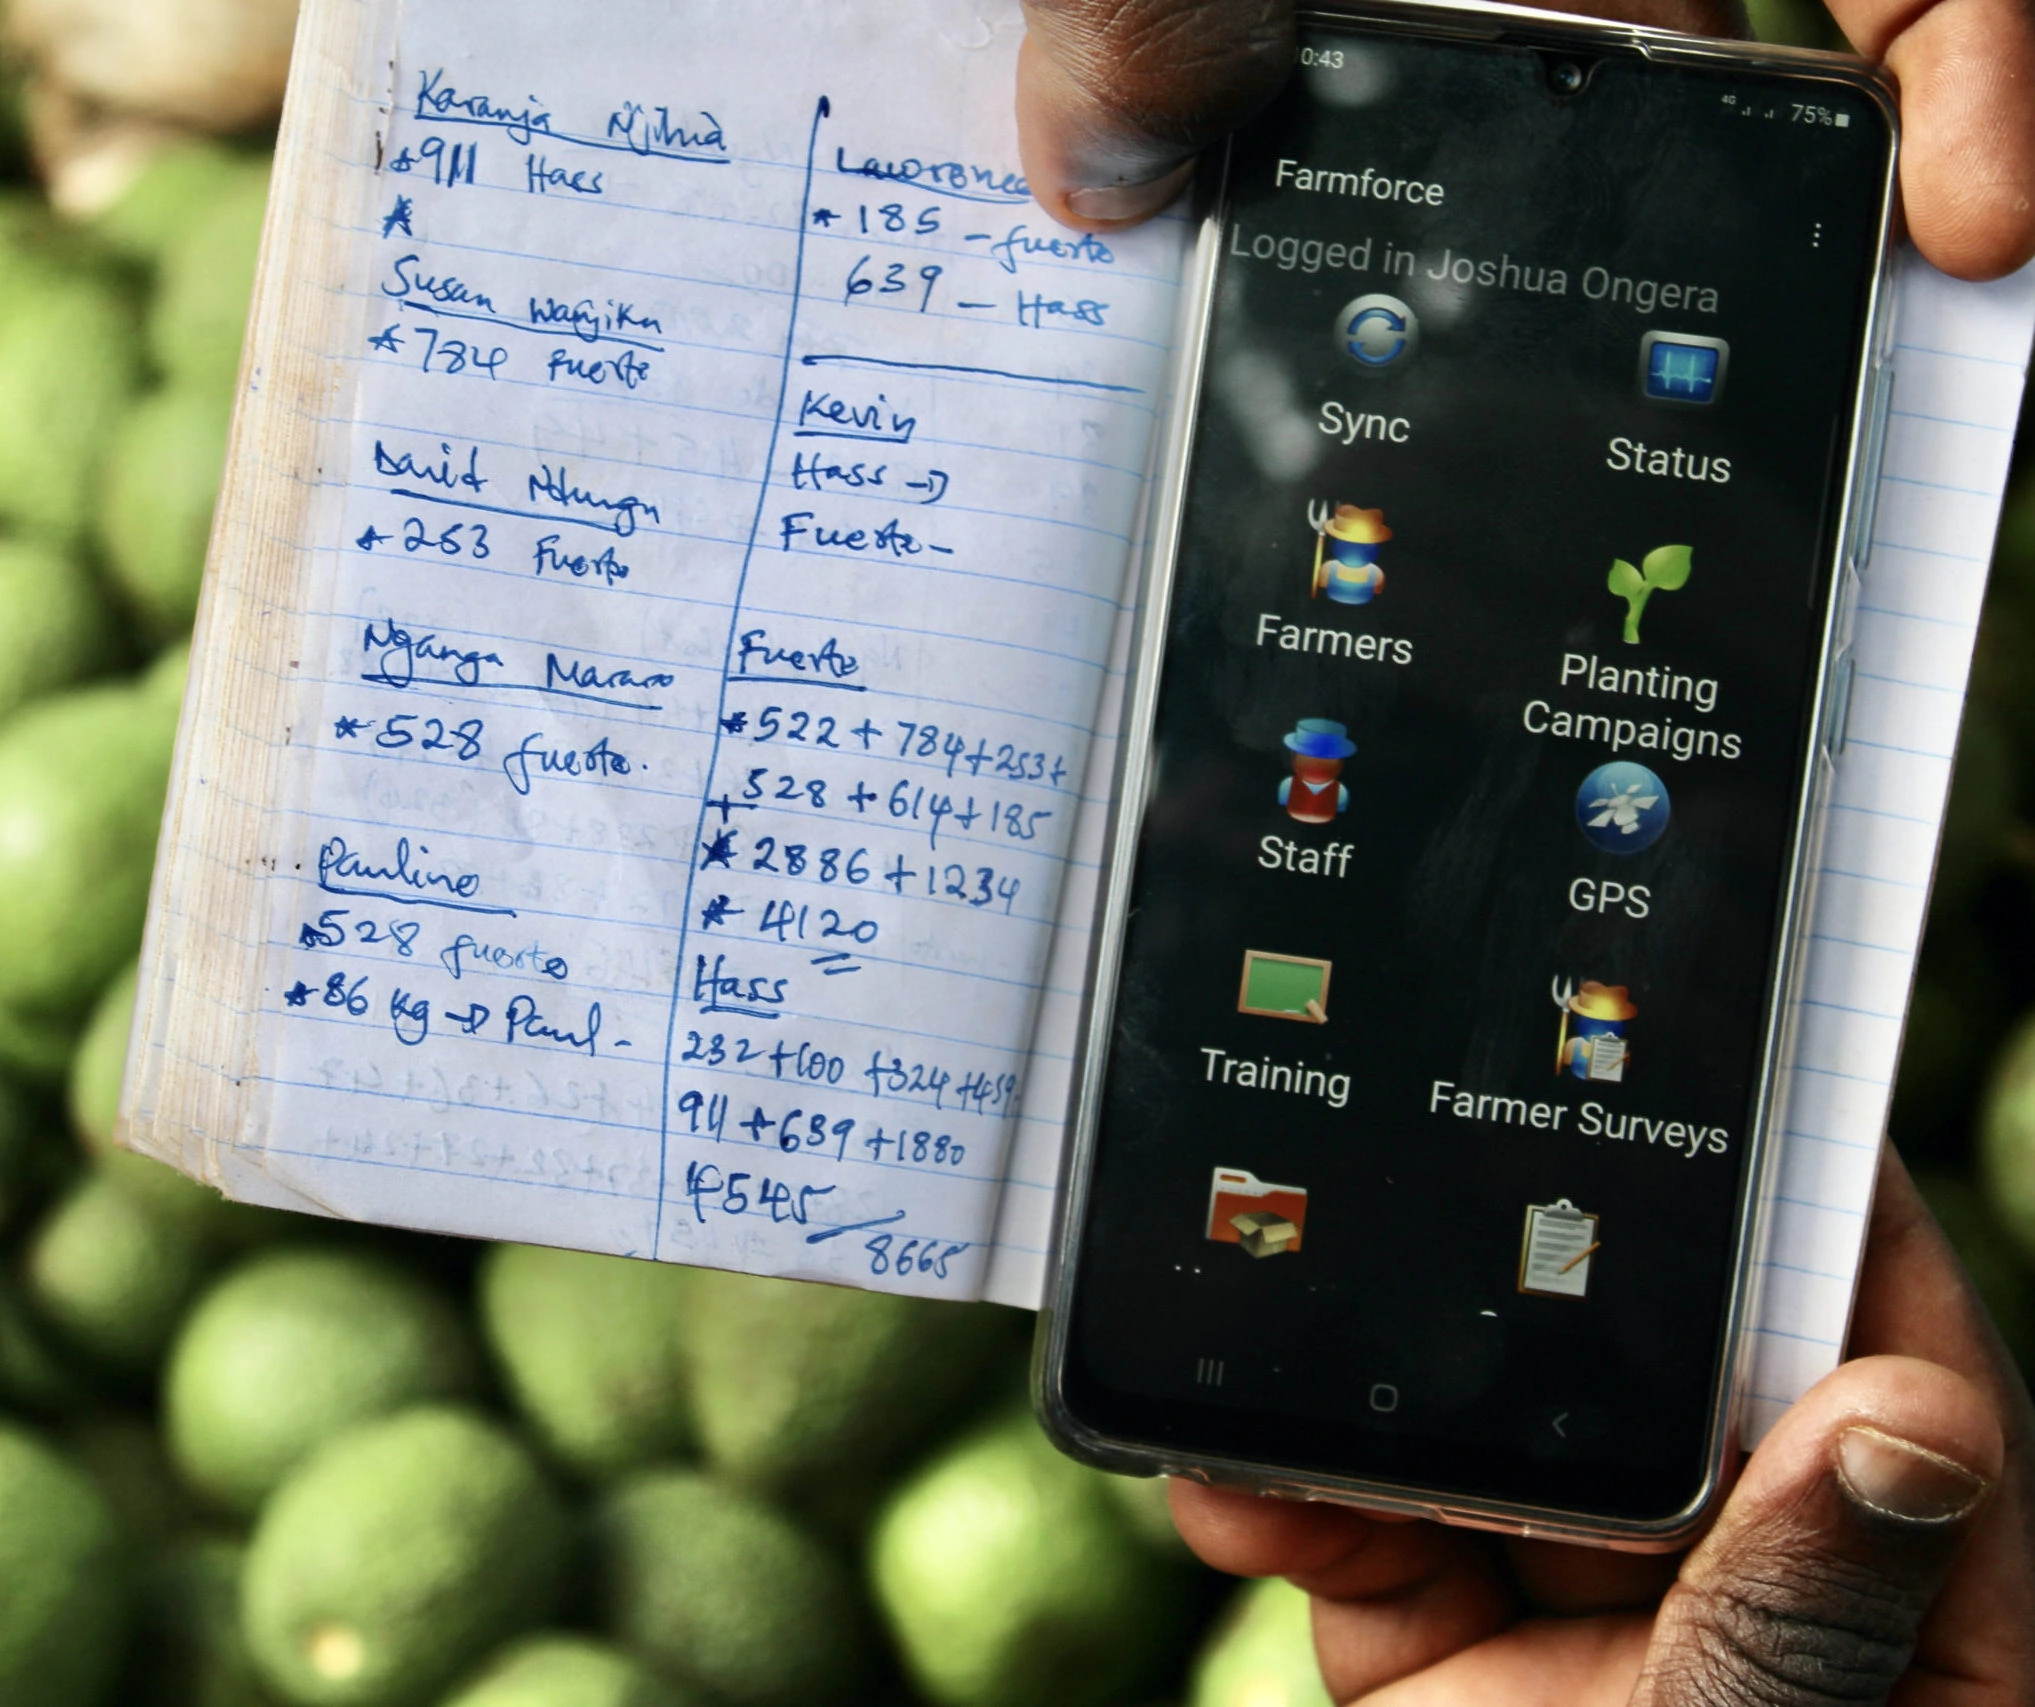 Karanja Njihia
* 911 Hass
Susan Wanjiku
* 784 Fuerte
David Ndungu
* 253 Fuerte
Nganga Mararo
* 528 fuerte.
Pauline
* 528 fuerte
* 86 kg → Paul -
Lawrence
* 185 - fuerte
639 - Hass
Kevin
Hass →
Fuerte -
Fuerte
* 522 + 784 + 253 +
+ 528 + 614 + 185
* 2886 + 1234
* 4120
Hass
232 + 100 + 324 + 459
911 + 639 + 1880
4545
8665
0:43
4G 75%
Farmforce
Logged in Joshua Ongera
Sync
Status
Farmers
Planting
Campaigns
Staff
GPS
Training
Farmer Surveys